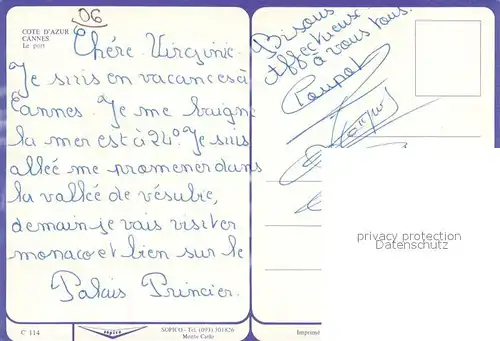 06
COTE D'AZUR
CANNES
Le port
Chère Virginie.
Je suis en vacances à
Cannes. Je me baigne
la mer est à 24°. Je suis
allée me promener dans
la vallée de vésubie,
demain je vais visiter
monaco et bien sur le
Palais Princier.
Bisous
Affectueux
à vous tous.
privacy protection
Datenschutz
C 114
SOPICO - Tél. (093) 301826
Monte Carlo
Imprimé